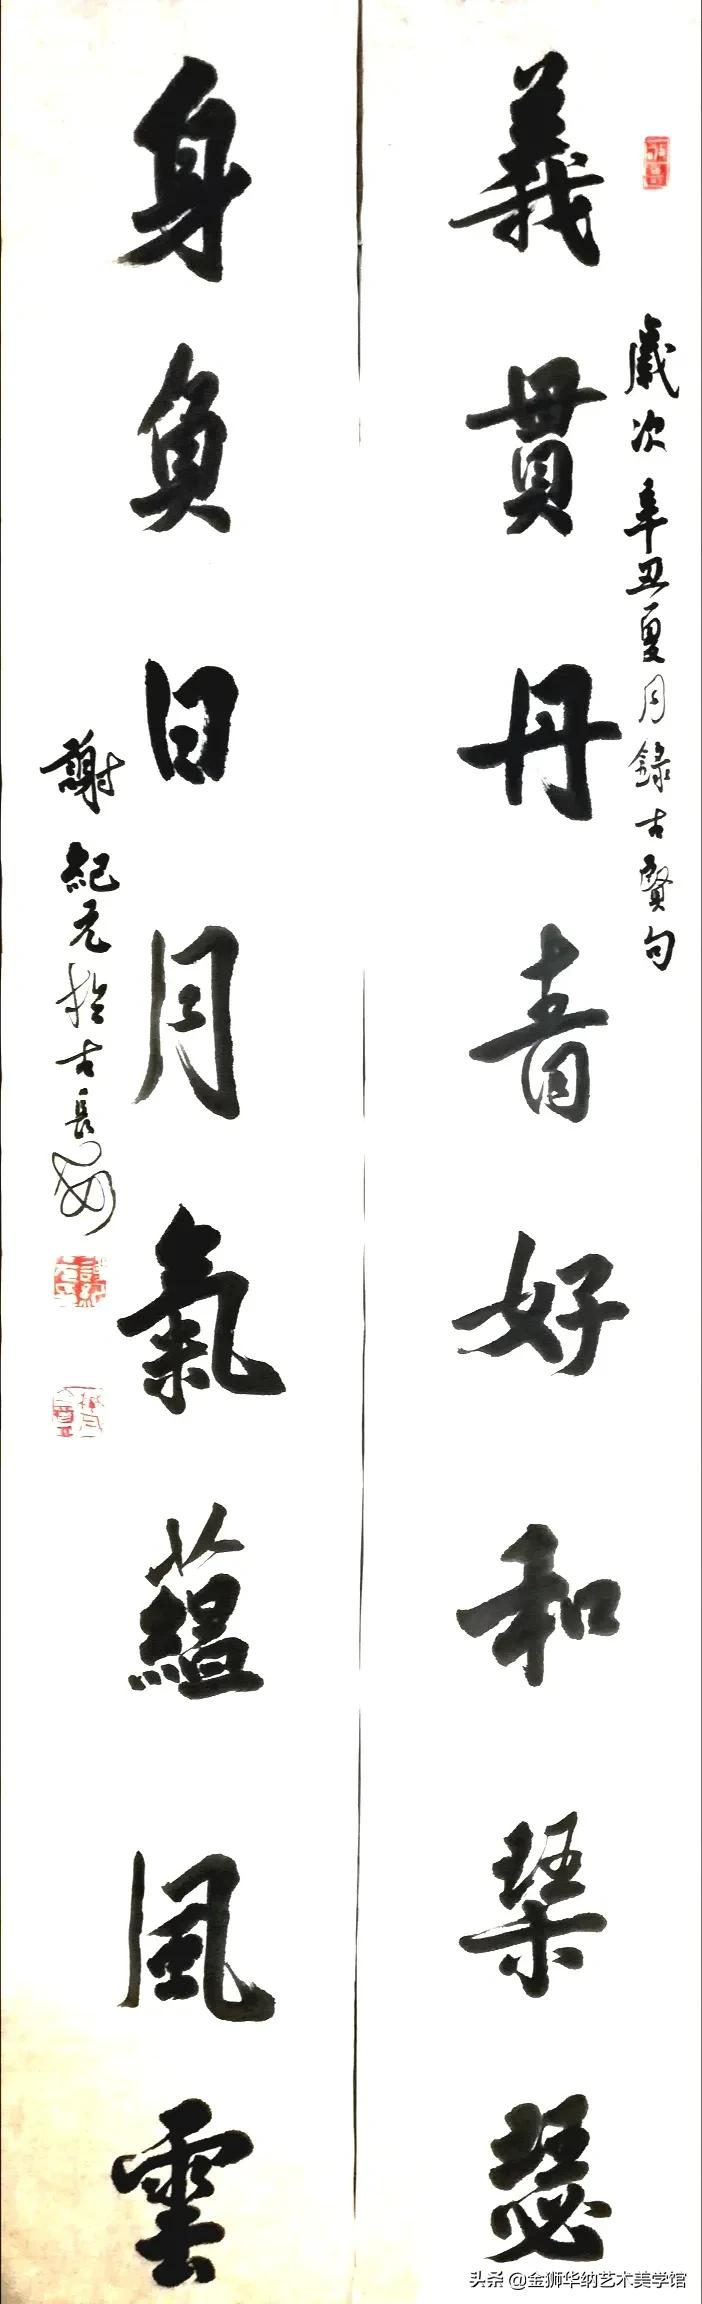 歲次辛丑夏月錄古賢句
義貫丹青好和琹瑟
身負日月氣蘊風雲
謝紀元於古長安
头条 @金狮华纳艺术美学馆